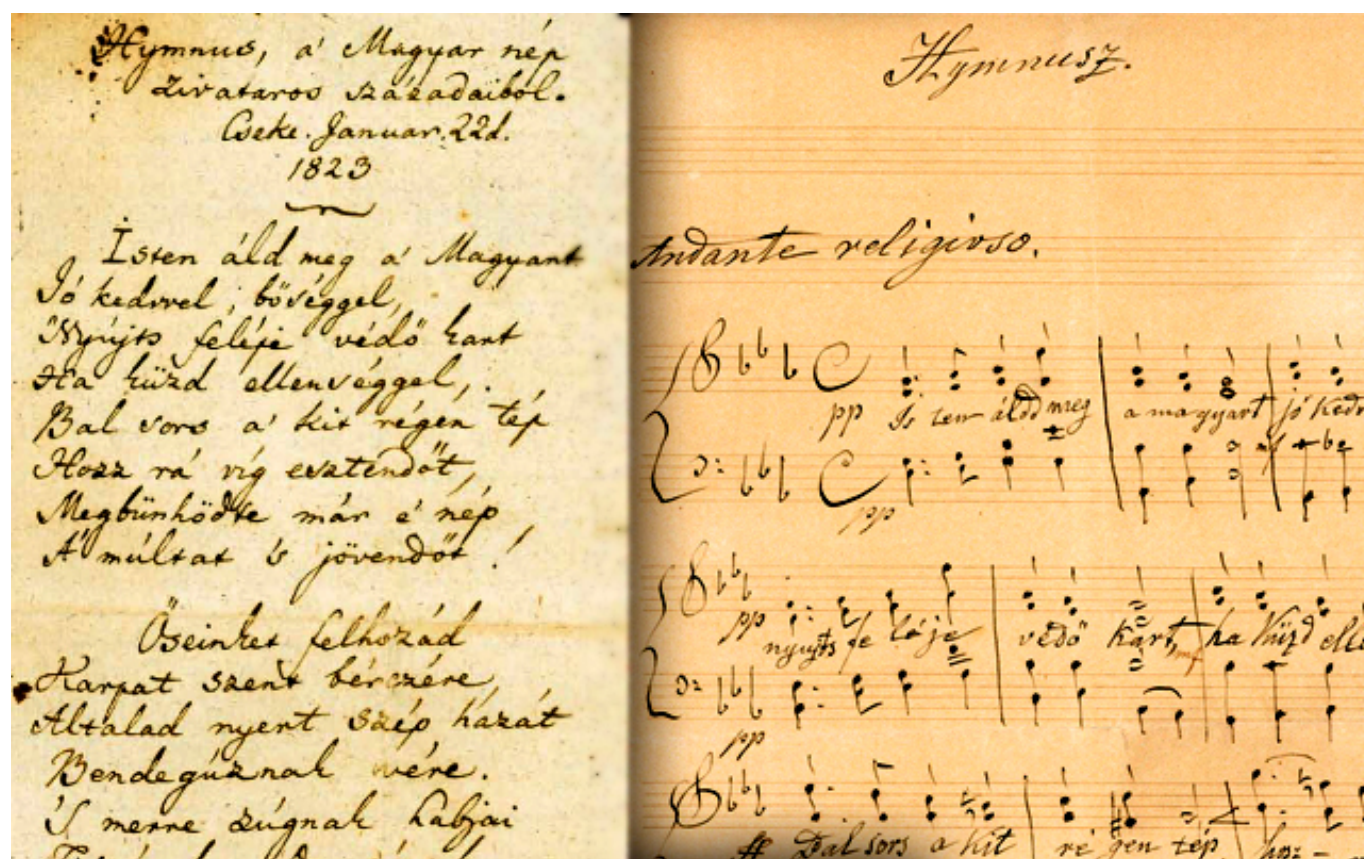 Hymnus, a' Magyar nép
zivataros századaiból.
Cseke. Januar. 22d.
1823
Isten áld meg a' Magyart
Jó kedvvel, bőséggel,
Nyújts feléje védő kart
Ha küzd ellenséggel,
Bal sors a' kit régen tép
Hozz rá víg esztendőt,
Megbűnhödte már e' nép
A' múltat 's jövendőt!
Őseinket felhozád
Karpat szent bérczére
Altalad nyert szép hazát
Bendegúznak vére.
'S merre zúgnak habjai
Hymnusz.
Andante religioso.
pp Is ten áldd meg a magyart jó kedv
mf
pp
pp nyujts fe léje védő kart, mf ha küzd elle
pp
ff Bal sors a kit ré gen tép hoz-